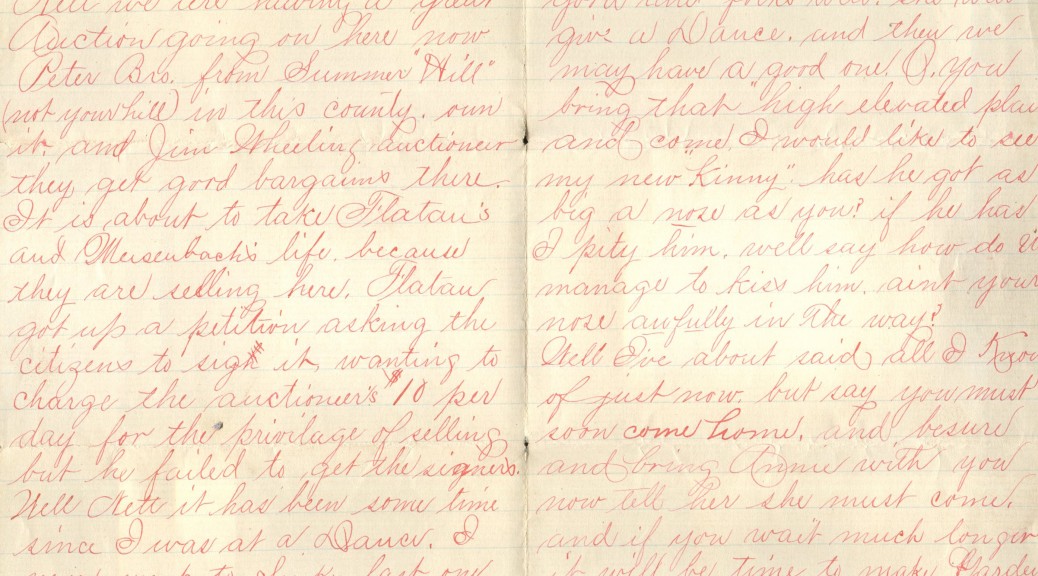 Nett we are having a great
Auction going on here now
Peter Bro. from Summer "Hill"
(not your hill) in this county. own
it. and Jim Wheeling auctioneer
they get good bargains there.
It is about to take Flatau's
and Meisenbach's life. because
they are selling here. Flatau
got up a petition asking the
citizens to sign it wanting to
charge the auctioneer's $10 per
day for the privilage of selling
but he failed to get the signers.
Well Nett it has been some time
since I was at a Dance. I
last one
give a Dance. and then we
may have a good one. O. you
bring that "high elevated
and come. I would like to see
my new "Kinny". has he got as
big a nose as you? if he has
I pity him. well say how do U
manage to kiss him. aint your
nose awfully in the way?
Well I've about said all I Know
of just now. but say you must
soon come home. and besure
and bring Annie with you
now tell her she must come.
and if you wait much longer
it will be time to make Garden